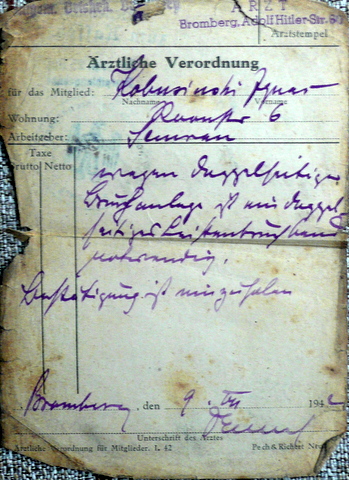 ARZT
Bromberg, Adolf Hitler-Str. 60
Arztstempel
Ärztliche Verordnung
für das Mitglied: Kobusinski Ignac
Nachname Vorname
Wohnung: 6
Arbeitgeber:
Taxe
Brutto Netto
wegen doppelseitiger
Bruchanlage ist ein doppel-
seitiges Leistenbruchband
notwendig.
Bestätigung ist einzuholen
Bromberg, den 9. VII 1942
Unterschrift des Arztes
Ärztliche Verordnung für Mitglieder. 1. 42